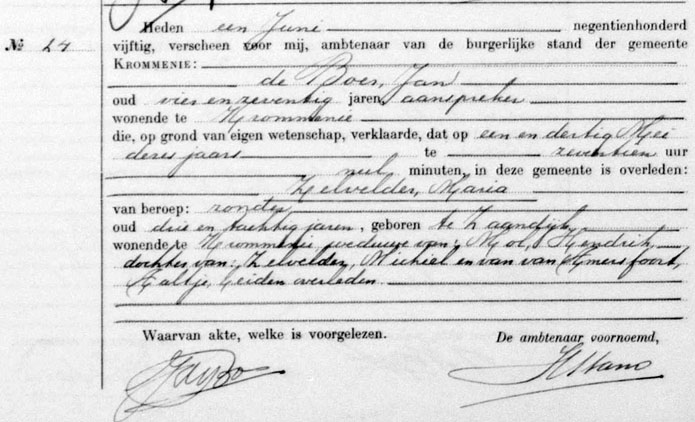 Heden een Juni negentienhonderd
№ 24 vijftig, verscheen voor mij, ambtenaar van de burgerlijke stand der gemeente
KROMMENIE:
de Boer, Jan
oud vier en zeventig jaren, aanspreker
wonende te Krommenie
die, op grond van eigen wetenschap, verklaarde, dat op een en dertig Mei
dezes jaars te zeventien uur
nul minuten, in deze gemeente is overleden:
Zelvelder, Maria
van beroep: zonder
oud drie en tachtig jaren, geboren te Zaandijk,
wonende te Krommenie, weduwe van: Mooi, Hendrik,
dochter van: Zelvelder, Michiel en van van Amersfoort,
Aaltje, beiden overleden.
Waarvan akte, welke is voorgelezen. De ambtenaar voornoemd,